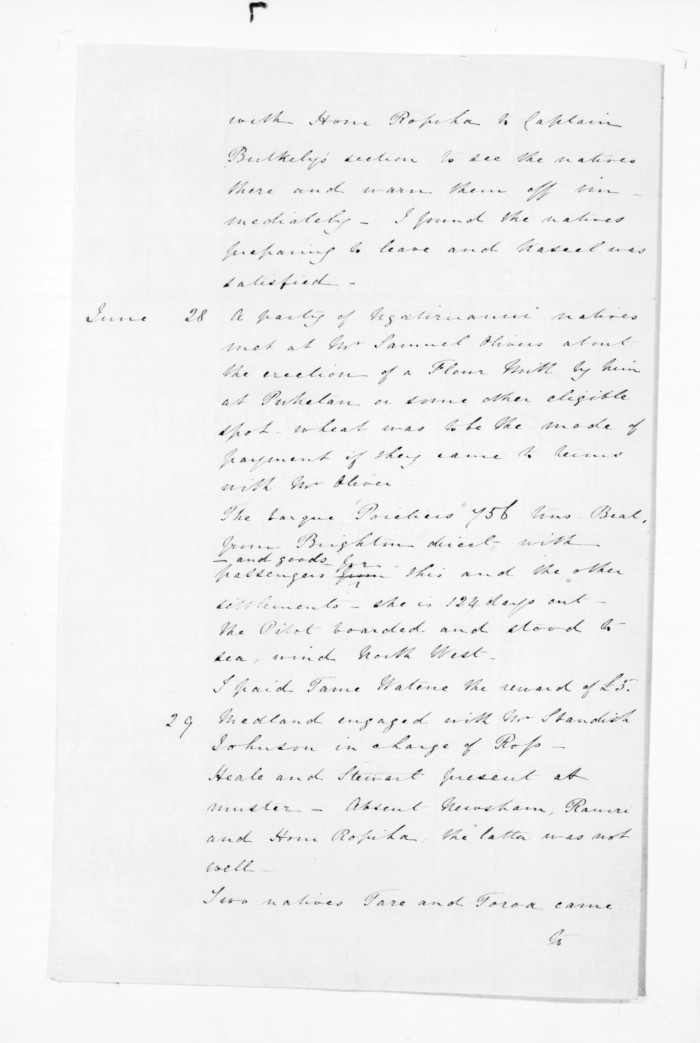 with Honi Ropiha to Captain
Bulkely's section to see the natives
there and warn them off im-
mediately - I found the natives
preparing to leave and was
satisfied -
June 28 A party of Ngatiruanui natives
met at Mr Samuel Olivers about
the erection of a Flour Mill by him
at Pukelau or some other eligible
spot - wheat was to be the mode of
payment if they came to terms
with Mr Oliver
The barque "Poictiers" 756 tons Beal,
from Brighton direct, with
- and goods - for
passengers from this and the other
settlements - she is 124 days out -
the Pilot boarded and stood to
sea, wind North West -
I paid Tame Watene the reward of £5.
29 Medland engaged with Mr Standish
Johnson in charge of Ross -
Heale and Stewart present at
muster - Absent Newsham, Rawiri
and Honi Ropiha, the latter was not
well -
Two natives Tare and Toroa came
to